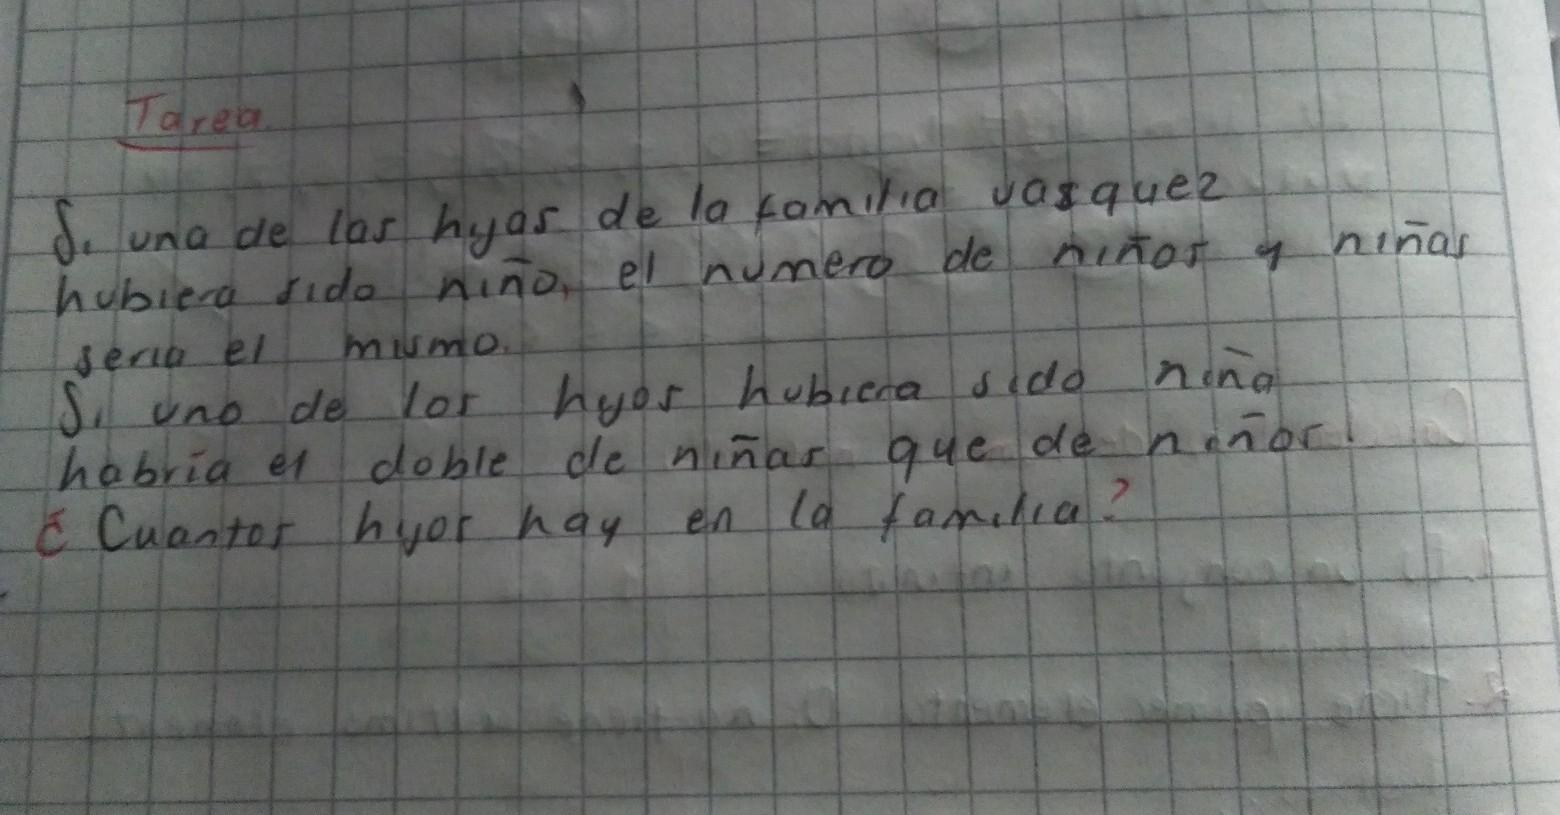 Tarea
Si una de las hijas de la familia vasquez
hubiera sido niño, el numero de niños y niñas
seria el mismo.
Si uno de los hijos hubiera sido niña
habria el doble de niñas que de niños.
¿Cuantos hijos hay en la familia?